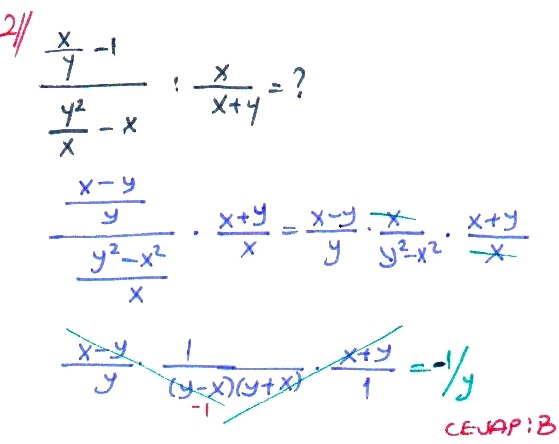 2//
(x/y - 1) / (y²/x - x) : x/(x+y) = ?
((x-y)/y) / ((y²-x²)/x) · (x+y)/x = (x-y)/y · x/(y²-x²) · (x+y)/x
(x-y)/y · 1/((y-x)(y+x)) · (x+y)/1 = -1/y
-1
CEVAP: B